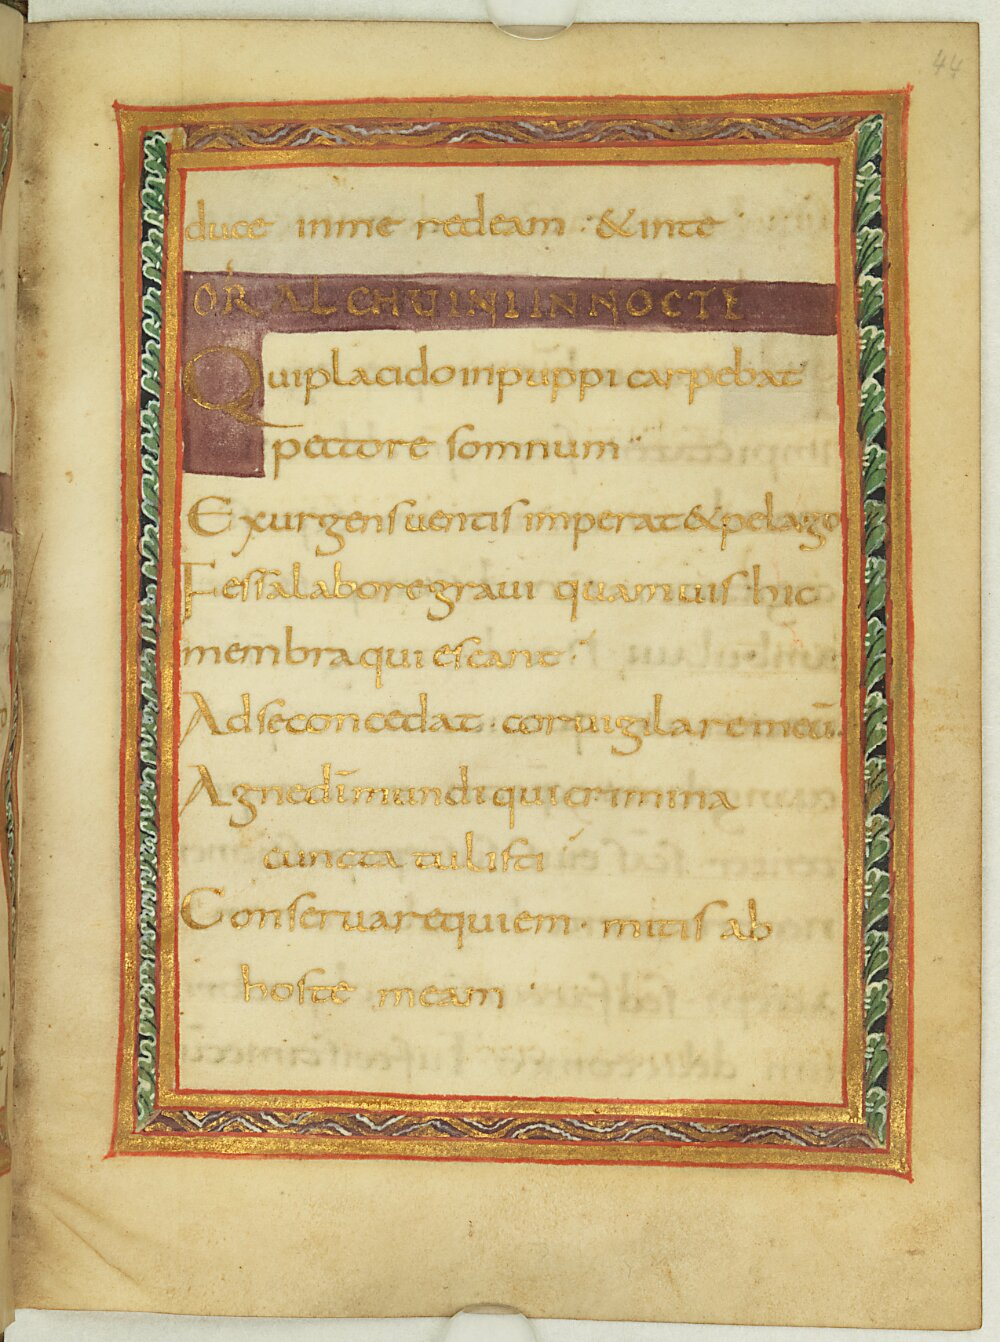 44
duce inme redeam · & inte ·
OR̄ ALCHUINI IN NOCTE
Qui placido in puppi carpebat
pectore somnum
Exurgens uentis imperat & pelago
Fessa labore graui quamuis hic
membra quiescant ·
Ad se concedat · cor uigilare meū ·
Agne dī mundi qui crimina
cuncta tulisti
Conserua requiem · mitis ab
hoste meam ·